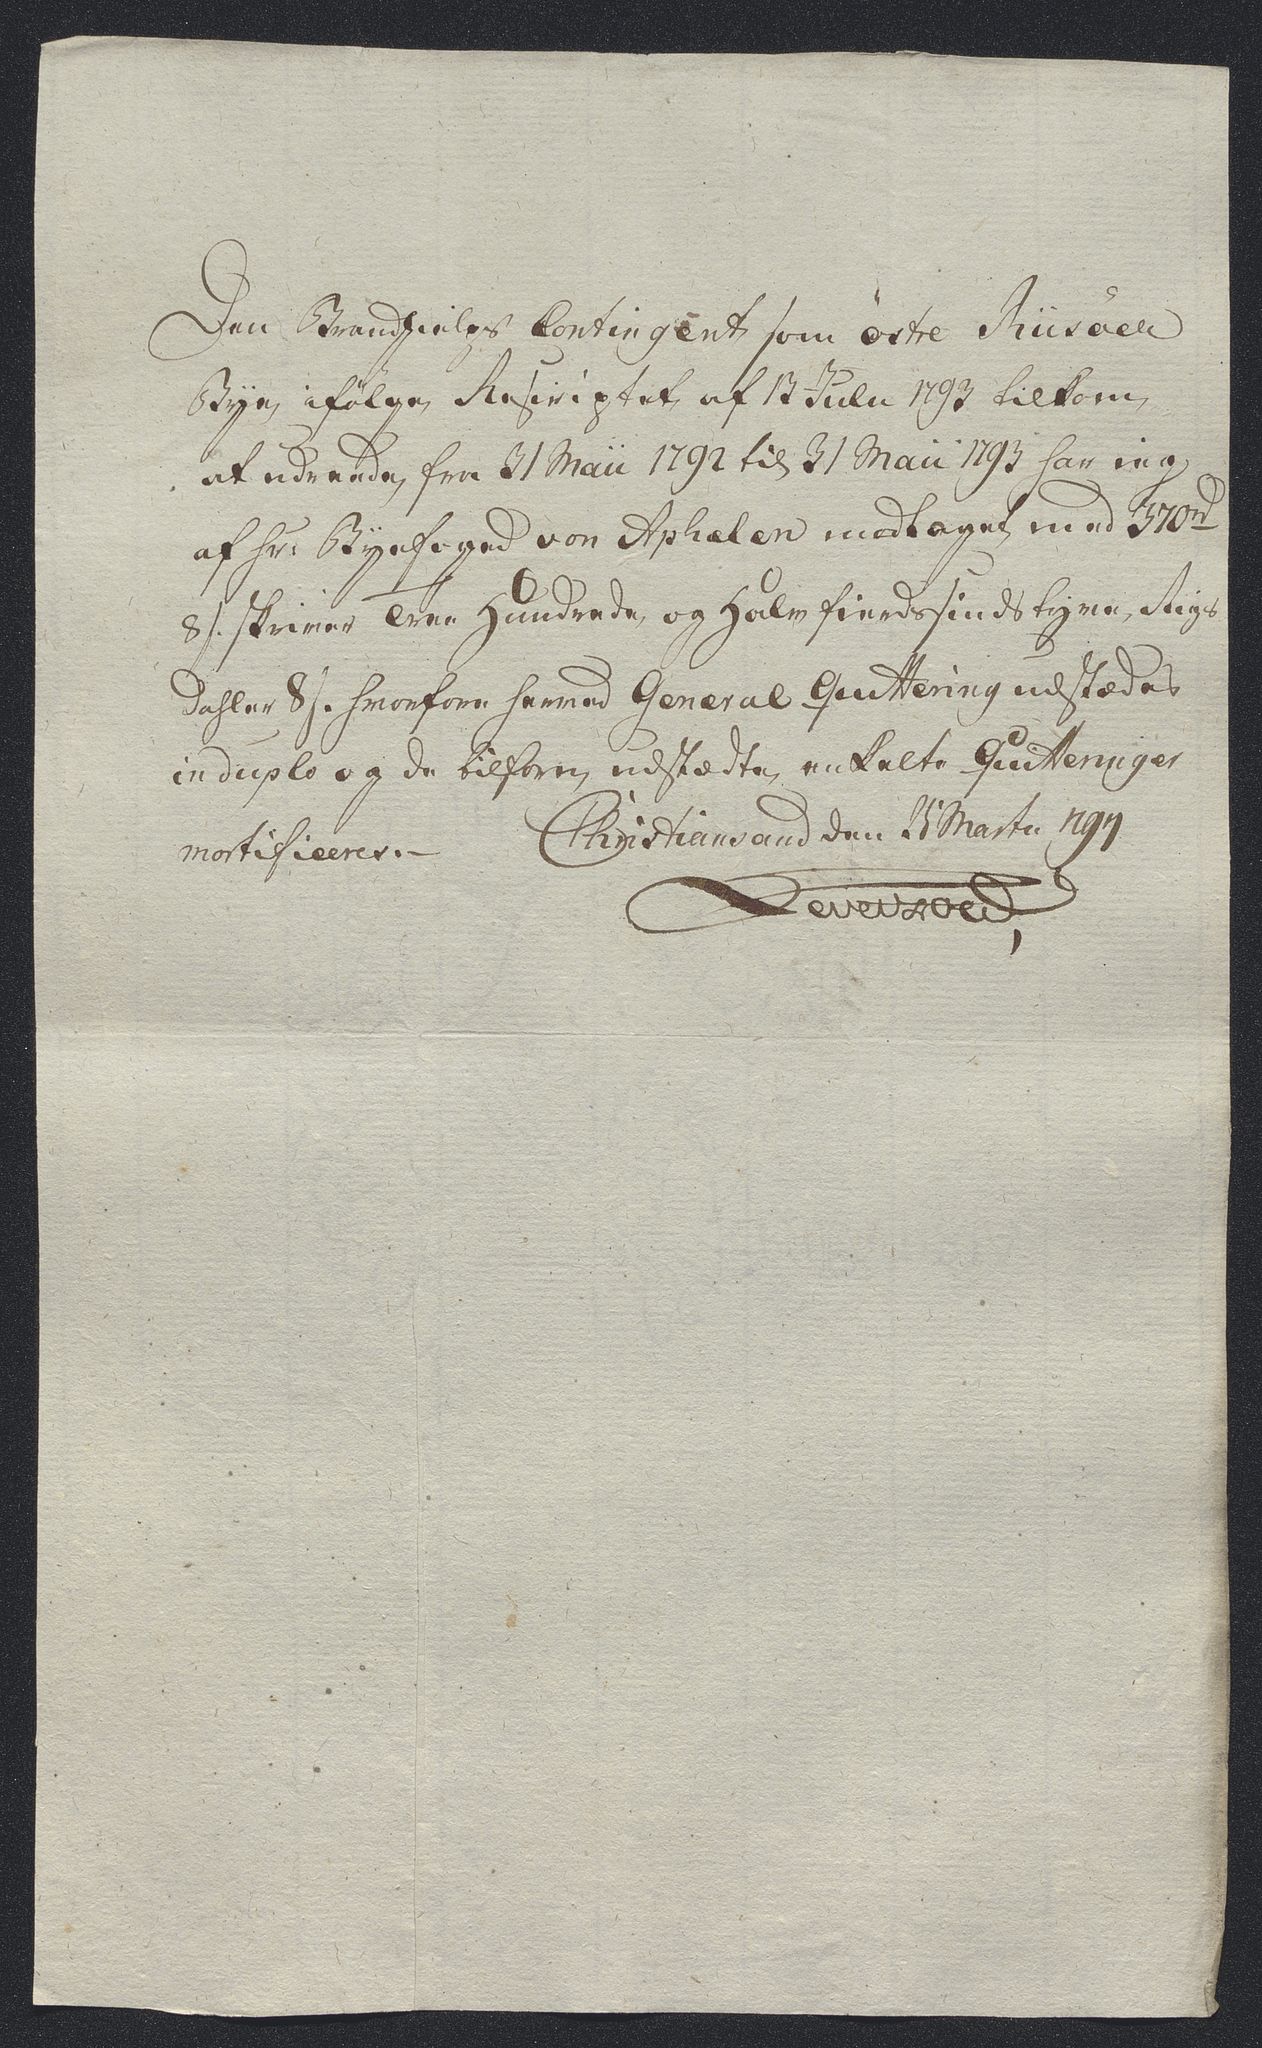 Den Brandhielps Contingent som östre Riisöer
Bye, ifölge Rescriptet af 13 Julii 1793 tilkom,
at udreede, fra 31 Maii 1792 til 31 Maii 1793 har ieg
af Hr: Byefoged von Aphelen modtaget med 370 rd
8 s. skriver tree Hundrede, og Halv fierdsindstyve, Rigs
daler 8 s. hvorfore herved General Quittering udstædes
in duplo og de tilforn udstædte, enkelte Quitteringer
mortificeres.—
Christiansand den 25 Martii 1794